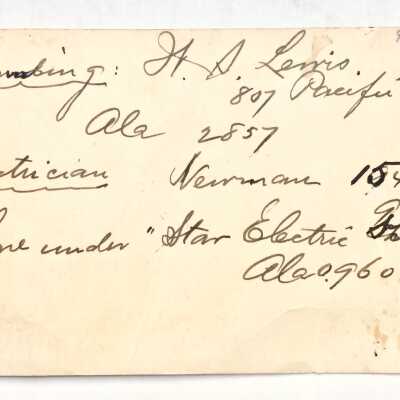 mbing: H. S. Lewis
807 Pacific
Ala 2857
trician Newman 154
ne under "Star Electric
Ala 0960